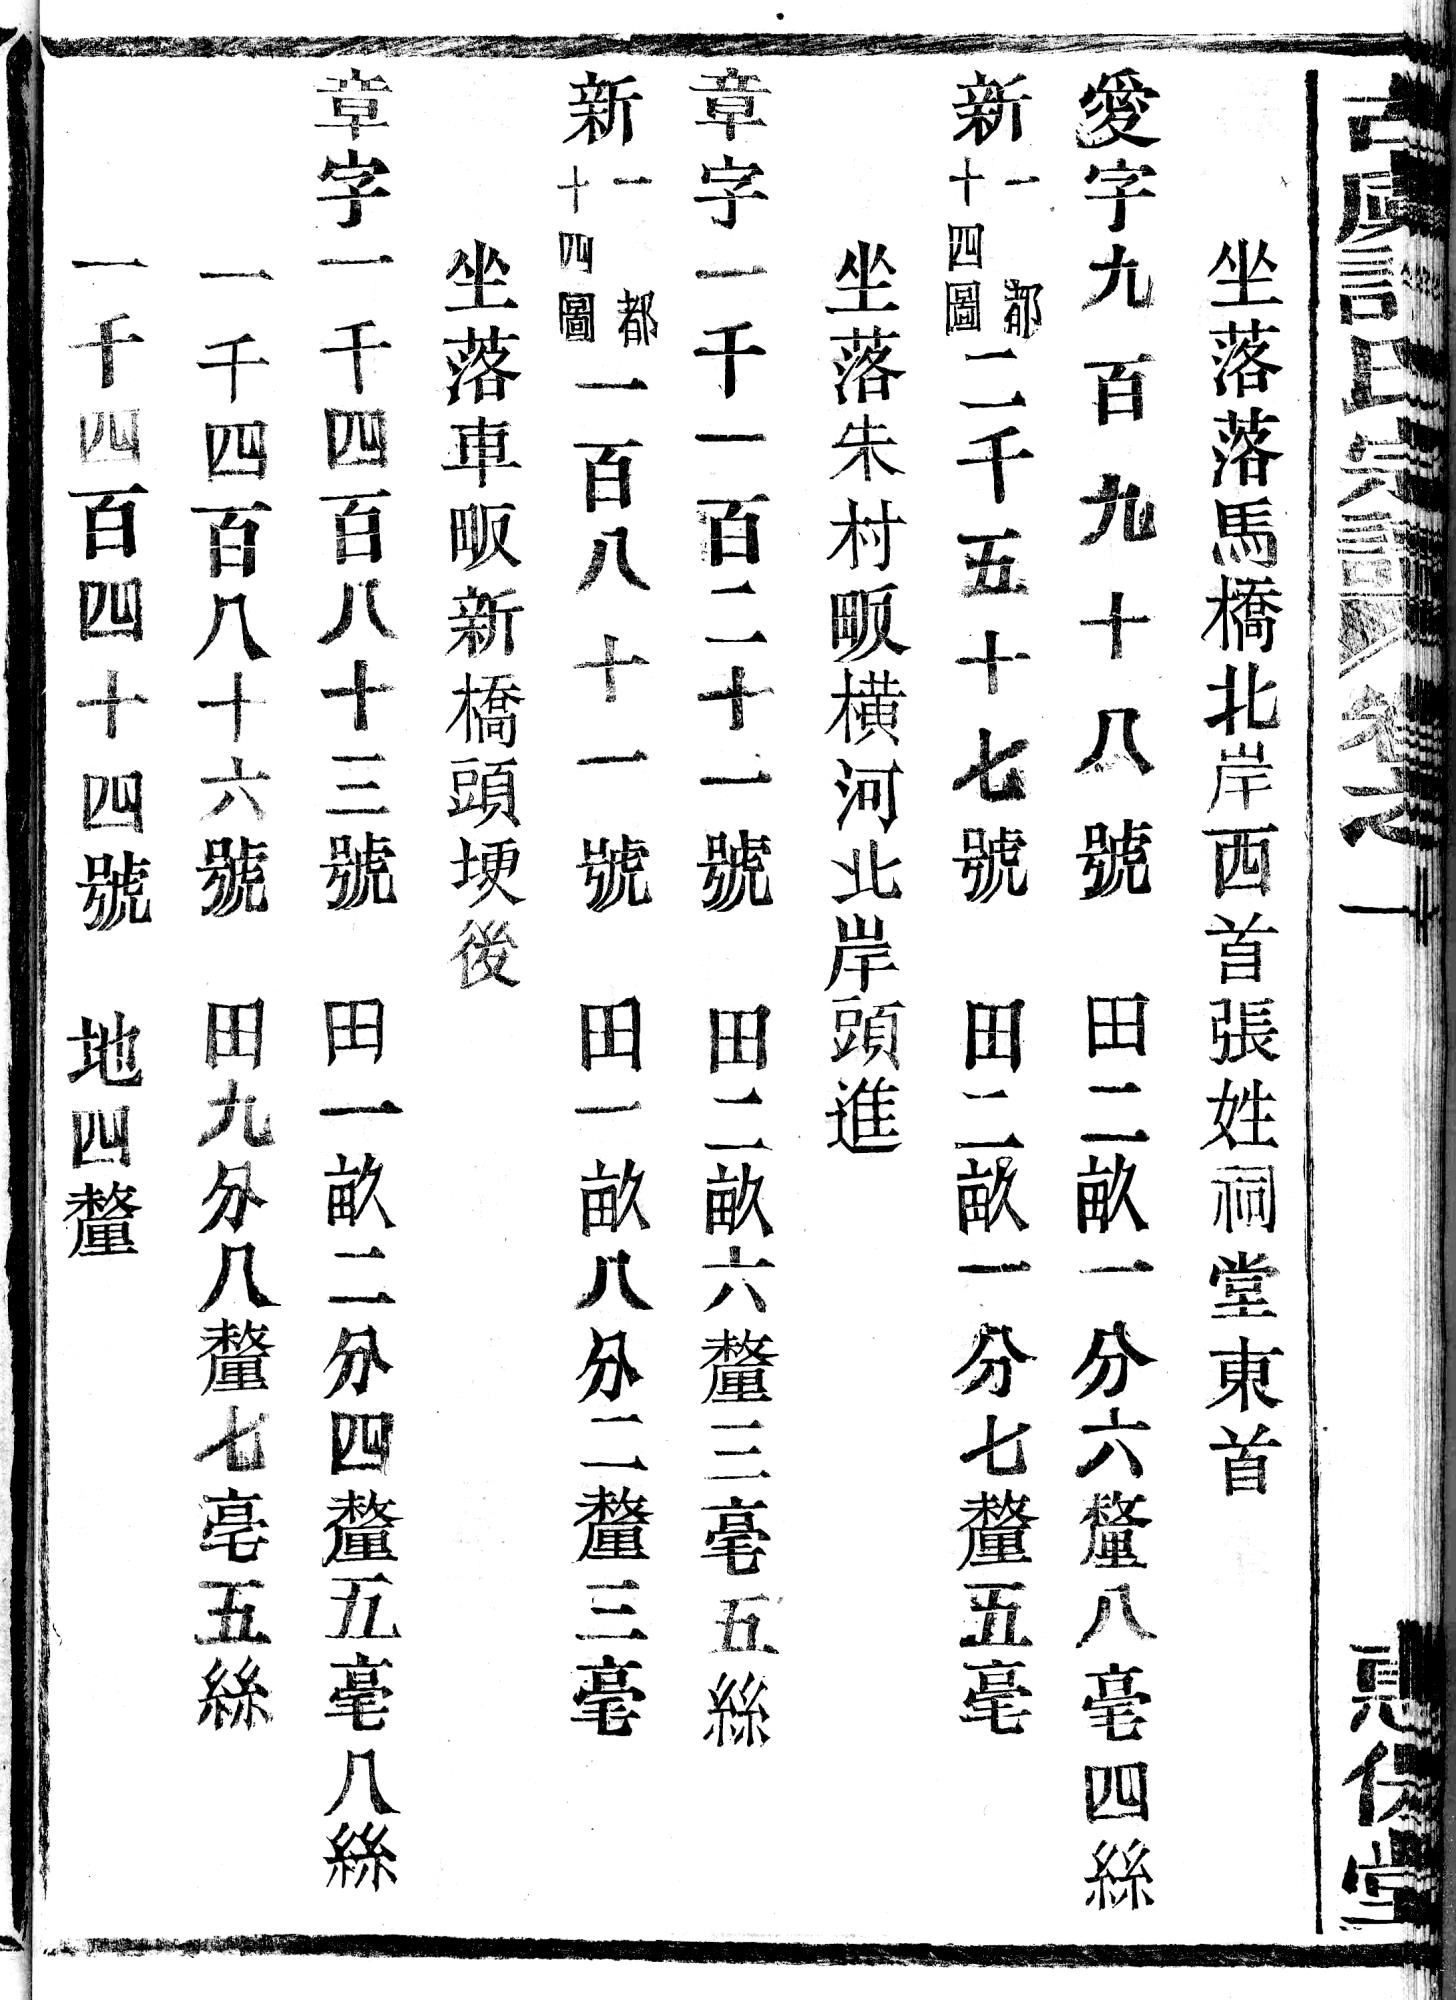 坐落落馬橋北岸西首張姓祠堂東首
愛字九百九十八號　田二畝一分六釐八毫四絲
新一都十四圖二千五十七號　田二畝一分七釐五毫
坐落朱村畈橫河北岸頭進
章字一千一百二十一號　田二畝六釐三毫五絲
新一都十四圖一百八十一號　田一畝八分二釐三毫
坐落車畈新橋頭埂後
章字一千四百八十三號　田一畝二分四釐五毫八絲
一千四百八十六號　田九分八釐七毫五絲
一千四百四十四號　地四釐